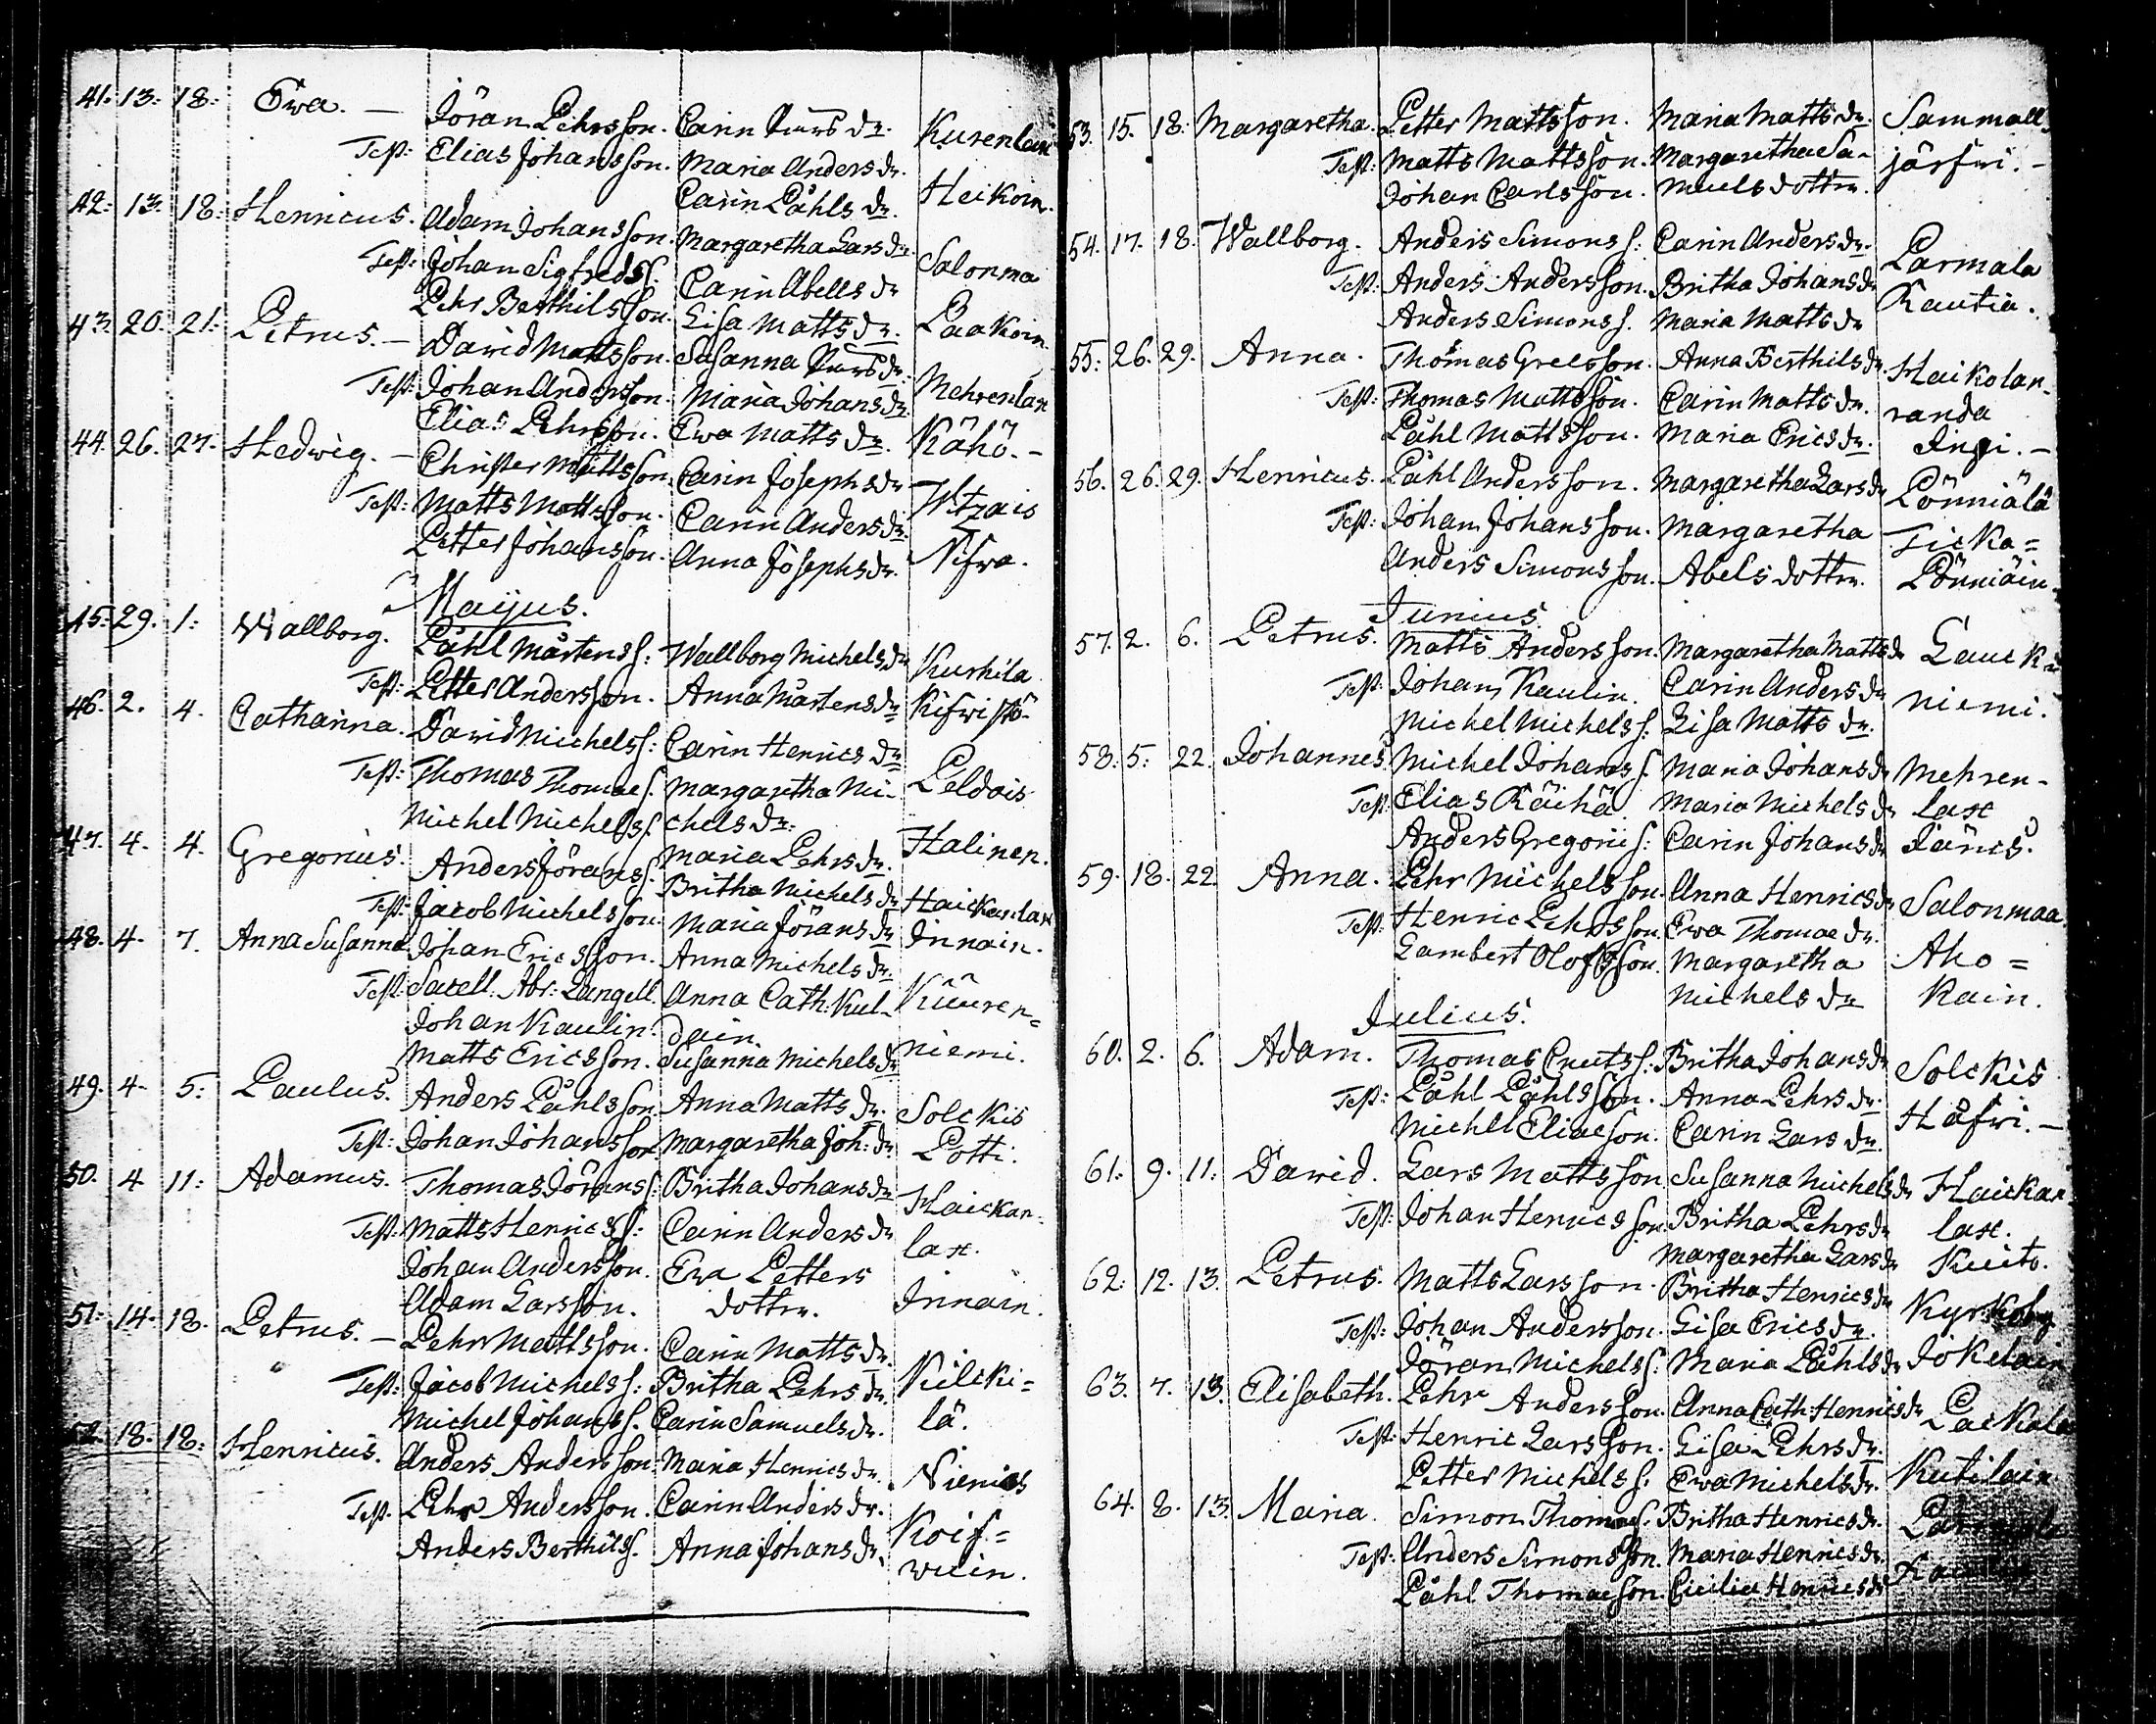 41. 13. 18. Ewa. — Jöran Pehrsson. Carin Lars dr. Kurenlain
Test: Elias Johansson. Maria Anders dr. Heikoin.
Carin Påhls dr.
42. 13. 18. Henricus. Adam Johansson. Margaretha Lars dr. Salonma
Test: Johan Sigfredss. Carin Abells dr Paakoin.
Pehr Berthilsson. Lisa Matts dr.
43. 20. 21. Petrus. — David Mattsson. Susanna Lars dr. Mehrenlax
Test: Johan Andersson. Maria Johans dr. Kähö. -
Elias Pehrsson. Ewa Matts dr.
44. 26. 27. Hedwig. — Christer Mattsson. Carin Josephs dr Witzais
Test: Matts Mattsson. Carin Anders dr. Nifwa.
Petter Johansson. Anna Josephs dr.
Mayus.
45. 29. 1. Wallborg. Påhl Mårtens s: Wallborg Michels dr Kurkila
Test: Petter Andersson. Anna Mårtens dr Kifwistö.
46. 2. 4. Catharina. David Michels s: Carin Henrics dr Peldois
Test: Thomas Thomæ s. Margaretha Mi-
Michel Michels s. chels dr. Halinen.
47. 4. 4. Gregorius. Anders Jörans s. Maria Pehrs dr.
Britha Michels dr Haickanlax
Test: Jacob Michelsson. Maria Jörans dr Innain.
48. 4. 7. Anna Susanna Johan Ericsson. Anna Michels dr.
Test: Sacell. Abr: Langell. Anna Cath. Kul- Küüren=
Johan Kaulin. dain. niemi.
Matts Ericsson. Susanna Michels dr
49. 4. 5. Paulus. Anders Påhlsson. Anna Matts dr. Solckis
Test: Johan Johansson Margaretha Joh: dr Potti.
50. 4 11. Adamus. Thomas Jörans s: Britha Johans dr Haickan-
Test: Matts Henrics s: Carin Anders dr lax.
Johan Andersson. Eva Petters
Adam Larsson. dotter. Innain.
51. 14. 18. Petrus. — Pehr Mattsson. Carin Matts dr.
Test: Jacob Michels s: Britha Pehrs dr. Kilcki=
Michel Johans s. Carin Samuels dr. lä.
52. 18. 18. Henricus. Anders Andersson. Maria Henrics dr. Niemis
Test. Pehr Andersson. Carin Anders dr. Koif=
Anders Berthils s. Anna Johans dr. wuin.
53. 15. 18. Margaretha. Petter Mattsson. Maria Matts dr. Sammall
Test: Matts Mattsson. Margaretha Sa- järfwi. -
Johan Carlsson. muels dotter.
54. 17. 18. Wallborg. Anders Simons s: Carin Anders dr. Parmala
Test: Anders Andersson. Britha Johans dr Rautia.
Anders Simons s. Maria Matts dr
55. 26. 29. Anna. Thomas Grelsson. Anna Berthils dr. Haikolan-
Test: Thomas Mattsson. Carin Matts dr. randa
Påhl Mattsson. Maria Erics dr. Ingi. —
56. 26. 29. Henricus. Påhl Andersson. Margaretha Lars dr Pönniälä
Test: Johan Johansson. Margaretha Ticka=
Anders Simonsson. Abels dotter. Pönniäin.
Junius.
57. 2. 6. Petrus. Matts Andersson. Margaretha Matts dr Lauck
Test: Johan Kaulin. Carin Anders dr niemi.
Michel Michels s. Lisa Matts dr.
58. 5. 22. Johannes. Michel Johans s. Maria Johans dr Mehren-
Test: Elias Räihä. Maria Michels dr lax
Anders Gregorii s: Carin Johans dr Jänes.
59. 18. 22. Anna. Pehr Michelsson. Anna Henrics dr Salonmaa.
Test: Henric Pehrsson. Ewa Thomæ dr. Aho=
Lambert Olofsson. Margaretha kain.
Michels dr
Julius.
60. 2. 6. Adam. Thomas Cnuts s: Britha Johans dr Solckis
Test: Påhl Påhlsson. Anna Pehrs dr. Håfwi. —
Michel Eliæson. Carin Lars dr.
61. 9. 11. David. Lars Mattsson Susanna Michels dr Haickan
Test: Johan Henricsson. Britha Pehrs dr lax.
Margaretha Lars dr Kuito.
62. 12. 13. Petrus. Matts Larsson. Britha Henrics dr Kyrkoby
Test: Johan Andersson. Lisa Erics dr. Jokelain
Jöran Michels s: Maria Påhls dr
63. 7. 13. Elisabeth. Pehr Andersson. Anna Cath: Henrics dr Packala
Test: Henric Larsson. Lisa Pehrs dr. Kutilain
Petter Michels s: Ewa Michels dr.
64. 8. 13. Maria. Simon Thomæ s. Britha Henrics dr.
Test: Anders Simonsson. Maria Henrics dr.
Påhl Thomæson. Cicilia Henrics dr